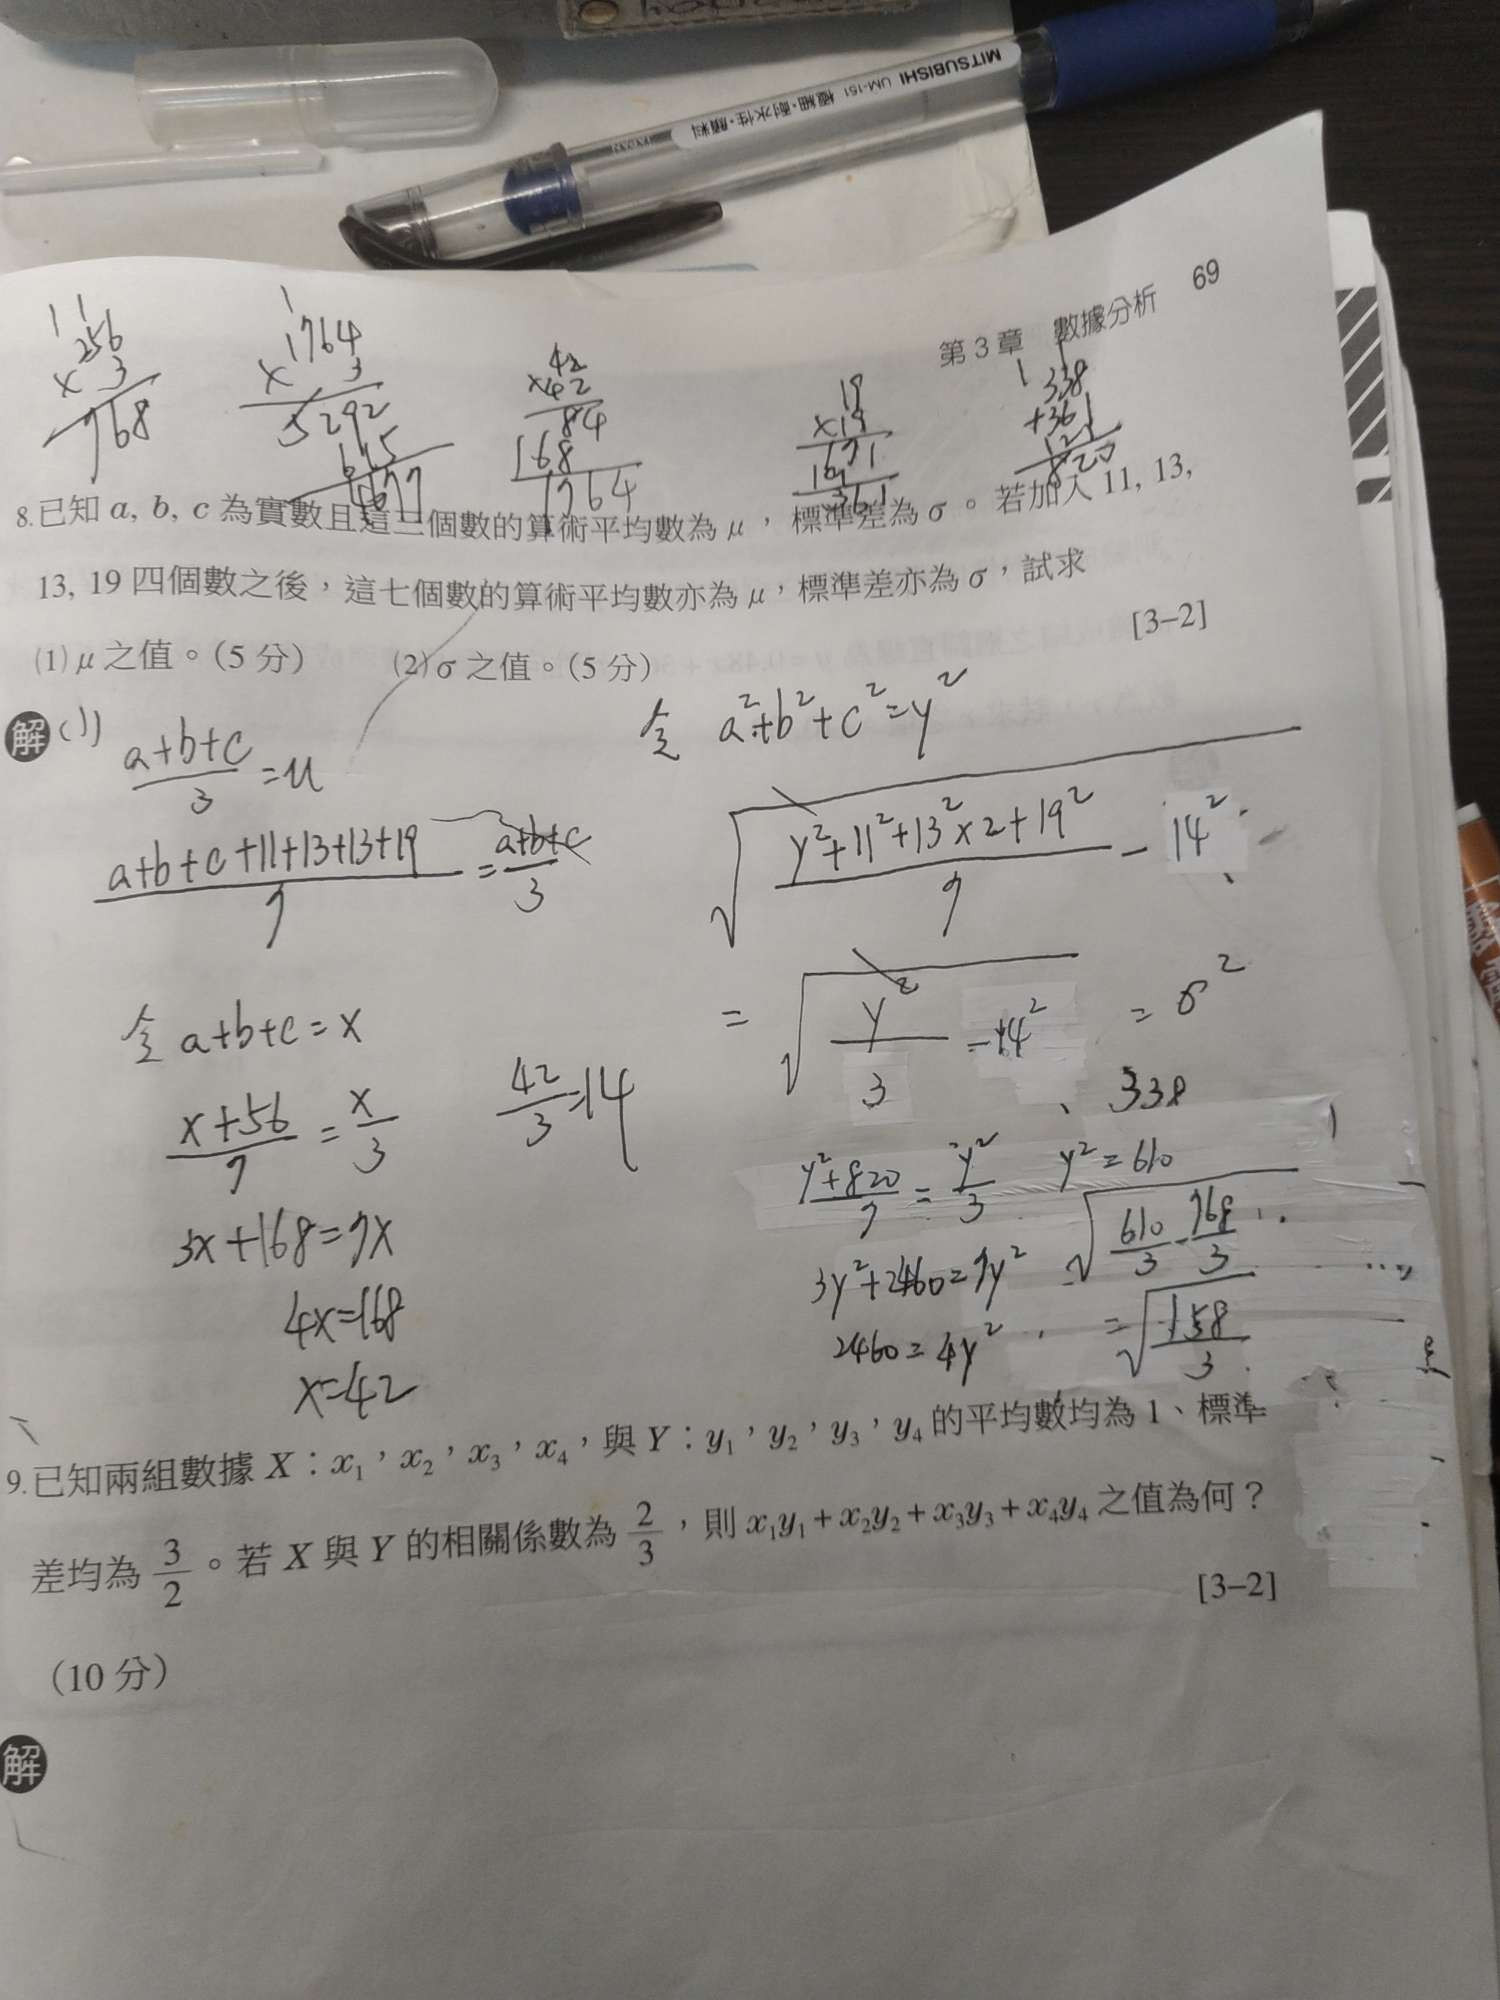 MITSUBISHI UM-151 極細・耐水性・顏料
第 3 章 數據分析 69
1 1
256
× 3
768
1
1764
× 3
5292
42
×42
84
168
1764
19
×19
171
361
1 1
338
+361
121
820
8.已知 a, b, c 為實數且這三個數的算術平均數為 μ，標準差為 σ。若加入 11, 13,
13, 19 四個數之後，這七個數的算術平均數亦為 μ，標準差亦為 σ，試求
[3–2]
(1) μ 之值。(5 分) (2) σ 之值。(5 分)
解 (1)
a+b+c/3 = u
a+b+c+11+13+13+19/7 = a+b+c/3
令 a+b+c=x
x+56/7 = x/3
42/3=14
3x+168=7x
4x=168
x=42
令 a²+b²+c²=y²
√ y²+11²+13²×2+19²/7 − 14²
= √ y²/3 − 14² = σ²
338
y²+820/7 = y²/3 y²=610
3y²+2460=7y²
2460=4y²
√ 610/3 − 768/3
= √ -158/3
9.已知兩組數據 X：x₁，x₂，x₃，x₄，與 Y：y₁，y₂，y₃，y₄ 的平均數均為 1、標準
差均為 3/2。若 X 與 Y 的相關係數為 2/3，則 x₁y₁+x₂y₂+x₃y₃+x₄y₄ 之值為何？
[3–2]
(10 分)
解